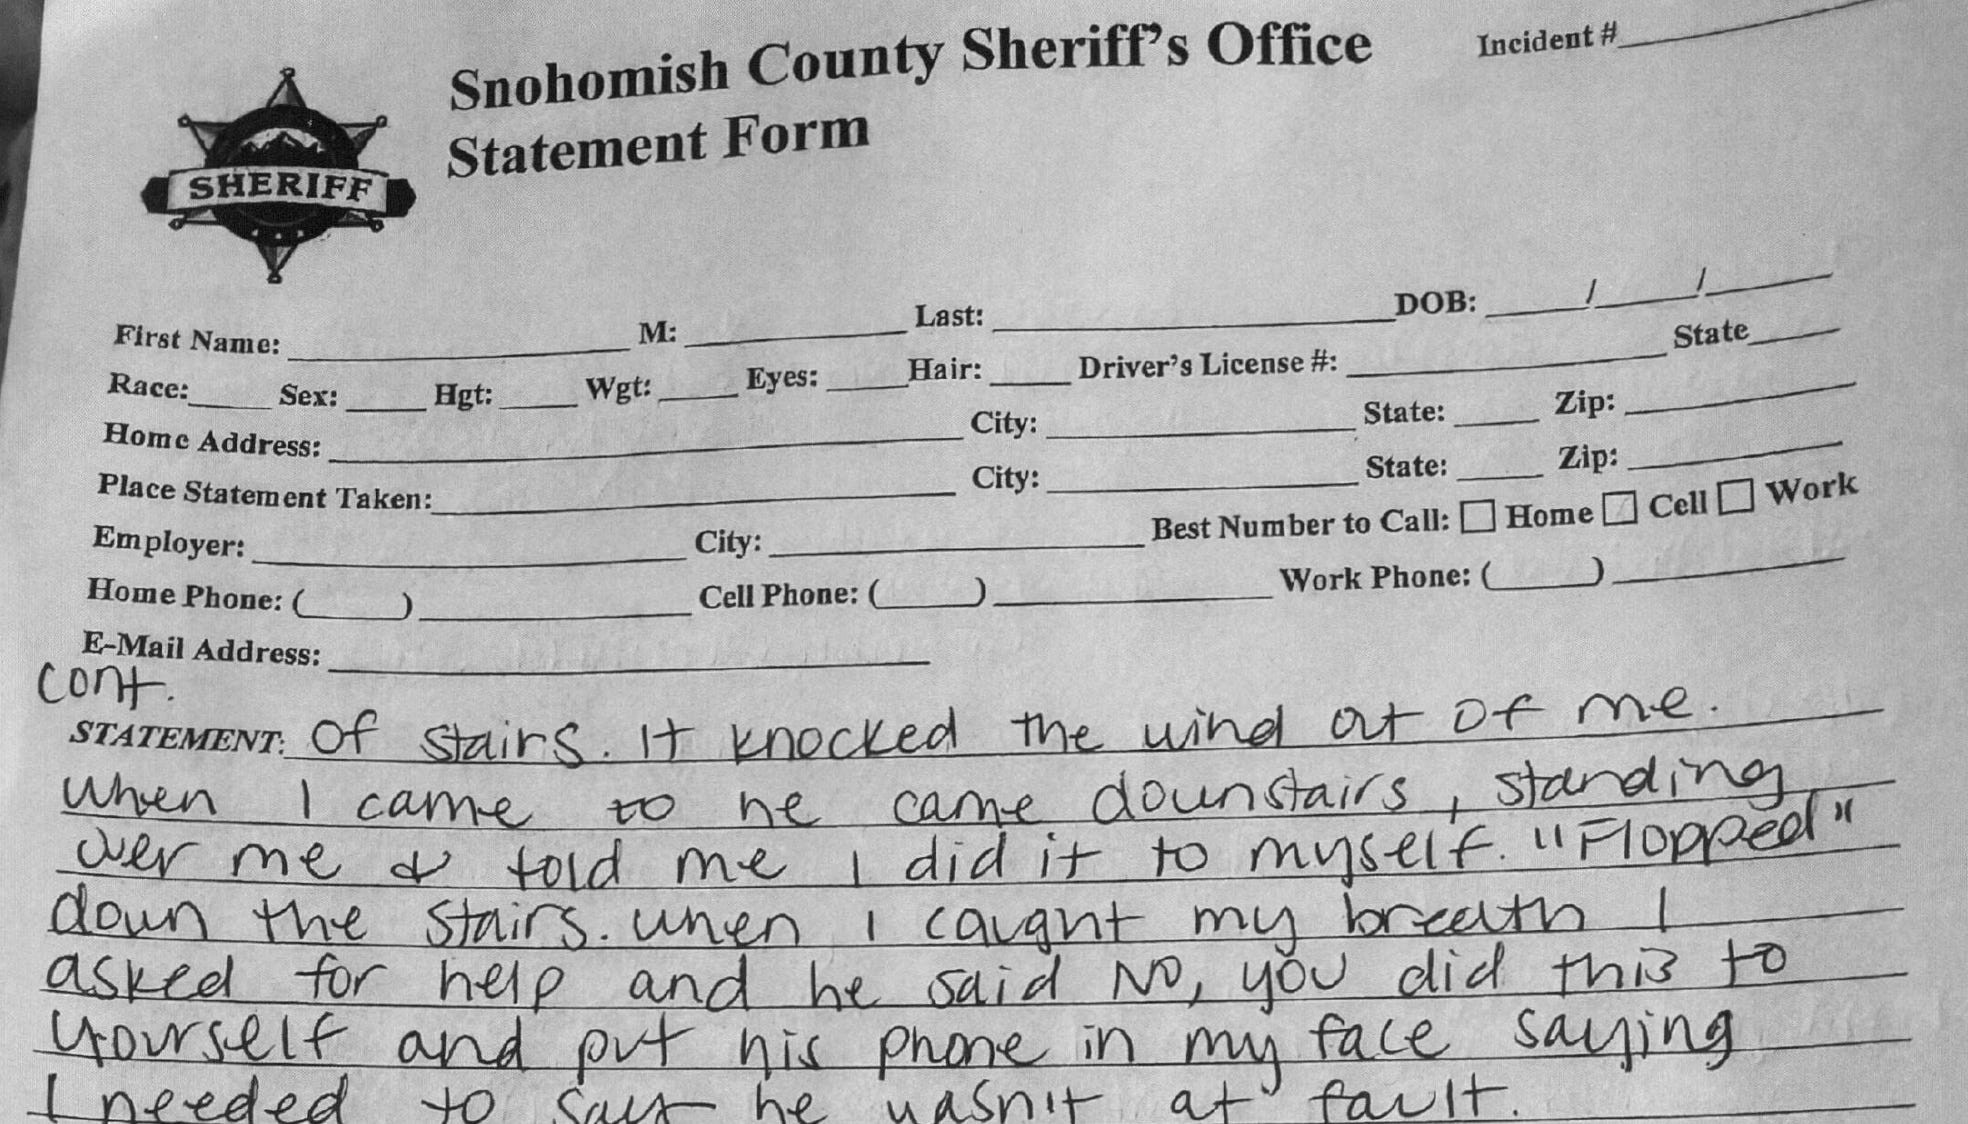 Snohomish County Sheriff's Office
Incident #
Statement Form
SHERIFF
First Name: M: Last: DOB: / /
Race: Sex: Hgt: Wgt: Eyes: Hair: Driver's License #: State
Home Address: City: State: Zip:
Place Statement Taken: City: State: Zip:
Employer: City: Best Number to Call: ☐ Home ☐ Cell ☐ Work
Home Phone: ( ) Cell Phone: ( ) Work Phone: ( )
E-Mail Address:
cont.
STATEMENT: Of stairs. It knocked the wind out of me.
When I came to he came downstairs, standing
over me & told me I did it to myself. "Flopped"
down the stairs. when I caught my breath I
asked for help and he said NO, you did this to
yourself and put his phone in my face saying
I needed to say he wasn't at fault.